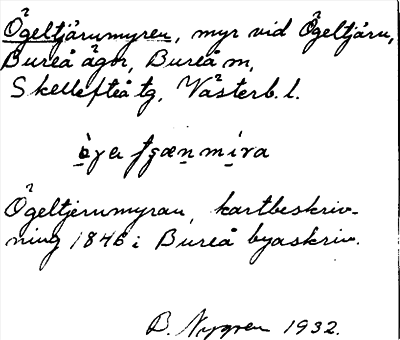 Ögeltjärnmyren, myr vid Ögeltjärn,
Bureå ägor, Bureå sn,
Skellefteå tg, Västerb. l.
Ögeltjernmyran, kartbeskriv-
ning 1846 i Bureå byaskriv.
B. Nygren 1932.